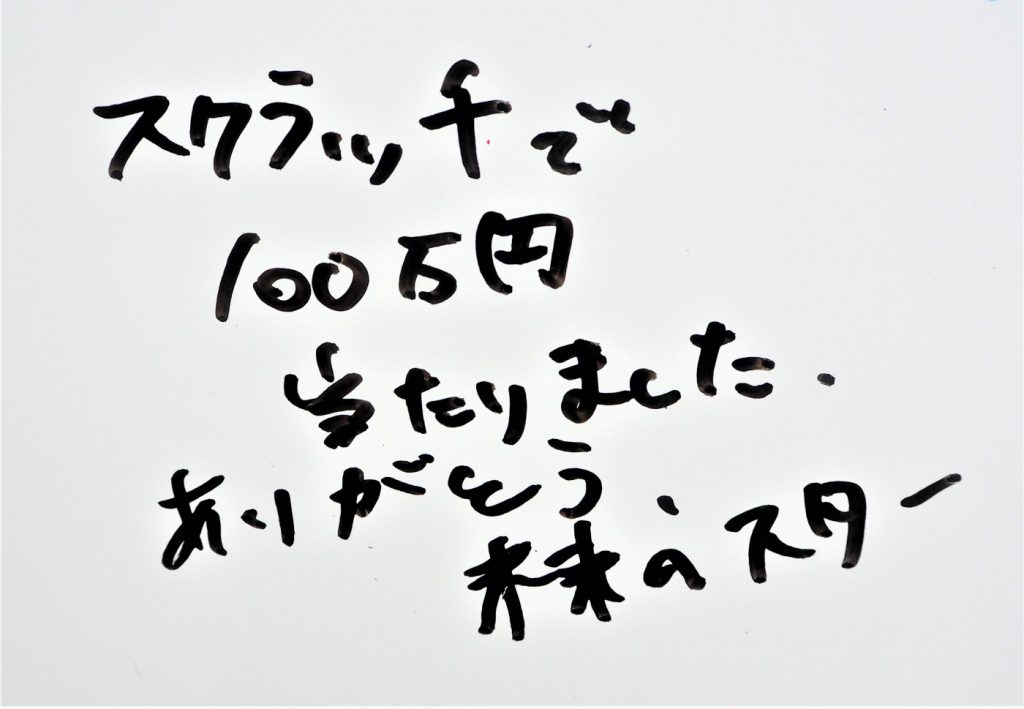 スクラッチで
100万円
当たりました.
ありがとう.
未来のスター